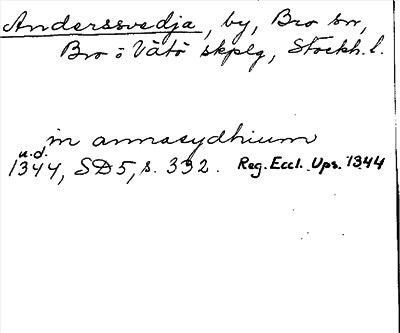 Anderssvedja, by, Bro sn,
Bro o Vätö skplg, Stockh. l.
in annasydhium
u.d.
1344, SD5, s. 332. Reg. Eccl. Ups. 1344